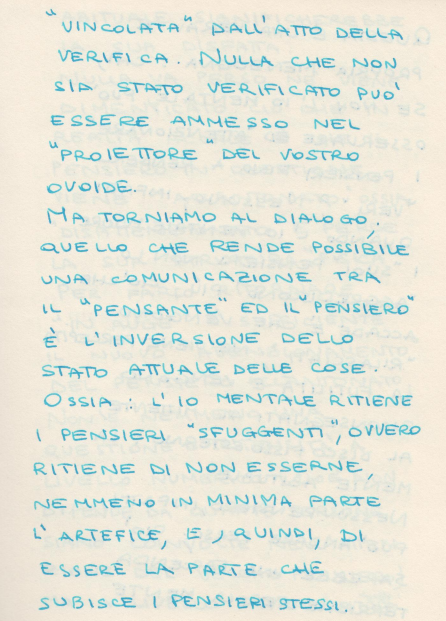 "VINCOLATA" DALL'ATTO DELLA
VERIFICA. NULLA CHE NON
SIA STATO VERIFICATO PUO'
ESSERE AMMESSO NEL
"PROIETTORE" DEL VOSTRO
OVOIDE.
MA TORNIAMO AL DIALOGO,
QUELLO CHE RENDE POSSIBILE
UNA COMUNICAZIONE TRA
IL "PENSANTE" ED IL "PENSIERO"
È L'INVERSIONE DELLO
STATO ATTUALE DELLE COSE.
OSSIA: L'IO MENTALE RITIENE
I PENSIERI "SFUGGENTI", OVVERO
RITIENE DI NON ESSERNE,
NEMMENO IN MINIMA PARTE
L'ARTEFICE, E, QUINDI, DI
ESSERE LA PARTE CHE
SUBISCE I PENSIERI STESSI.